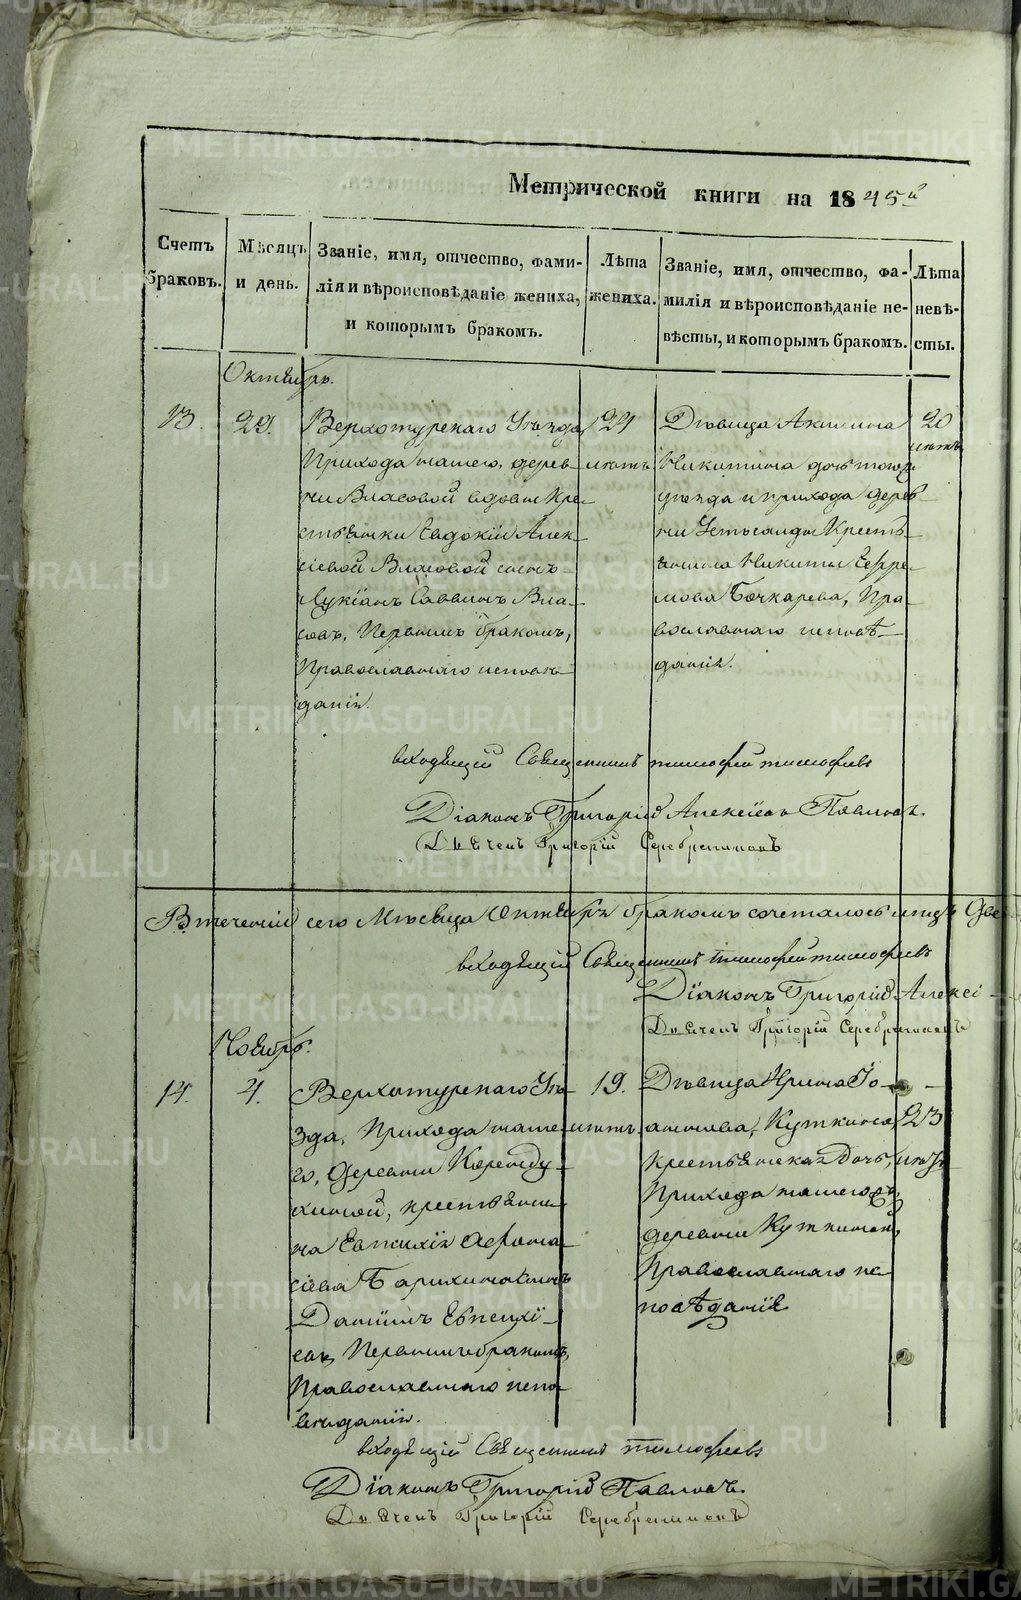 METRIKI.GASO-URAL.RU
Метрической книги на 1845й
Счетъ браковъ.
Мѣсяцъ и день.
Званіе, имя, отчество, фами-
лія и вѣроисповѣданіе жениха,
и которымъ бракомъ.
Лѣта
жениха.
Званіе, имя, отчество, фа-
милія и вѣроисповѣданіе не-
вѣсты, и которымъ бракомъ.
Лѣта
невѣ-
сты.
Октябрь.
13.
29.
Верхотурскаго Уѣзда
Прихода нашего, дерев-
ни Власовой вдовы Кре-
стьянки Евдокіи Алек-
сіевой Власовой сынъ
Лукіанъ Саввинъ Вла-
совъ, Первымъ бракомъ,
Православнаго исповѣ-
данія.
24
лѣтъ
Дѣвица Акилина
Никитина дочь тогоже
уѣзда и прихода дерев-
ни Устьсалды Кресть-
янина Никиты Ефре-
мова Бочкарева, Пра-
вославнаго исповѣ-
данія.
20
лѣтъ
входящій Священникъ тимофей тимофеевъ
Діаконъ Григорій Алексіевъ Павловъ.
Дьячекъ Григорій Серебренниковъ
Втеченіи сего Мѣсяца Октября бракомъ сочеталось лицъ Две
входящій Священникъ тимофей тимофеевъ
Діаконъ Григорій Алексі-
Дьячекъ Григорій Серебренниковъ
Ноябрь.
14.
4.
Верхотурскаго Уѣ-
зда, Прихода наше-
го, деревни
крестьяни-
на Евпсихія Афана-
сіева
Даніилъ Евпсихі-
евъ, Первымъ бракомъ,
Православнаго испо-
вѣданія.
19.
лѣтъ.
Дѣвица Ирина Іо-
аннова, Куткина
крестьянская Дочь,
Прихода нашегожъ,
деревни Куткиной,
Православнаго ис-
повѣданія
23
лѣтъ
входящій Священникъ тимофеевъ
Діаконъ Григорій Павловъ.
Дьячекъ Григорій Серебренниковъ